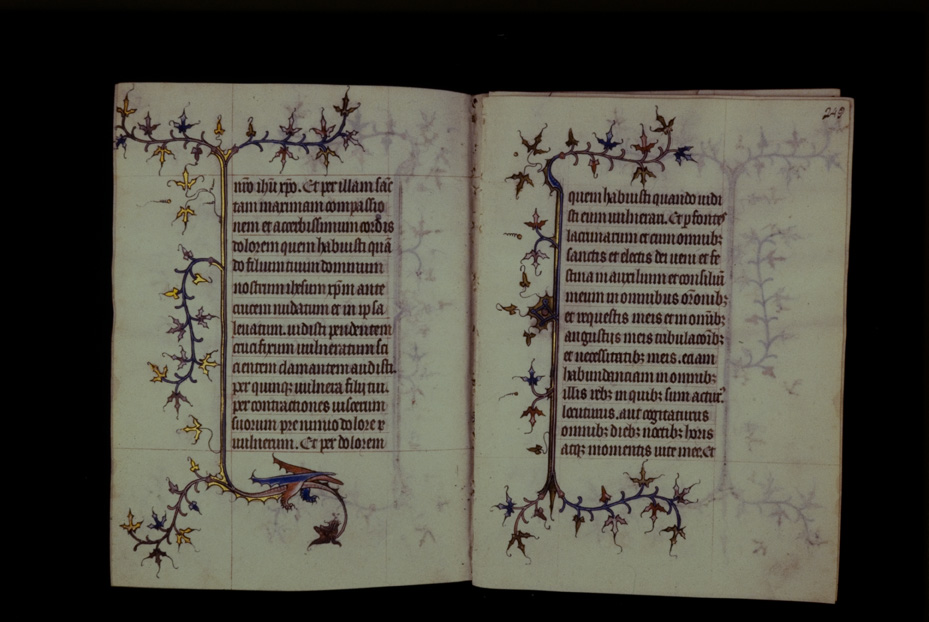 nr̄o ihū xp̄o. Et per illam sāc
tam maximam compassio
nem et acerbissimum cordis
dolorem quem habuisti quā
do filium tuum dominum
nostrum ihesum xp̄m ante
crucem nudatum et in ip̄sa
leuatum. uidisti pendentem
crucifixum uulneratum sci
cientem clamantem audisti.
per quinqꝫ uulnera filij tui.
per contractiones uiscerum
suorum pre nimio dolore
uulnerum. Et per dolorem
249
quem habuisti quando uidi
sti eum uulnerari. Et ꝑ fontes
lacrimarum et cum omnibꝫ
sanctis et electis dei ueni et fe
stina in auxilium et consiliū
meum in omnibus or̄onibꝫ
et requestis meis et in om̄ibꝫ
angustiis meis tribulac̄oibꝫ
et necessitatibꝫ meis. etiam
habundantiam in omnibꝫ
illis rebꝫ in quibꝫ sum actur᷒
locuturus. aut cogitaturus
omnibꝫ diebꝫ noctibꝫ horis
atqꝫ momentis uite mee. Et